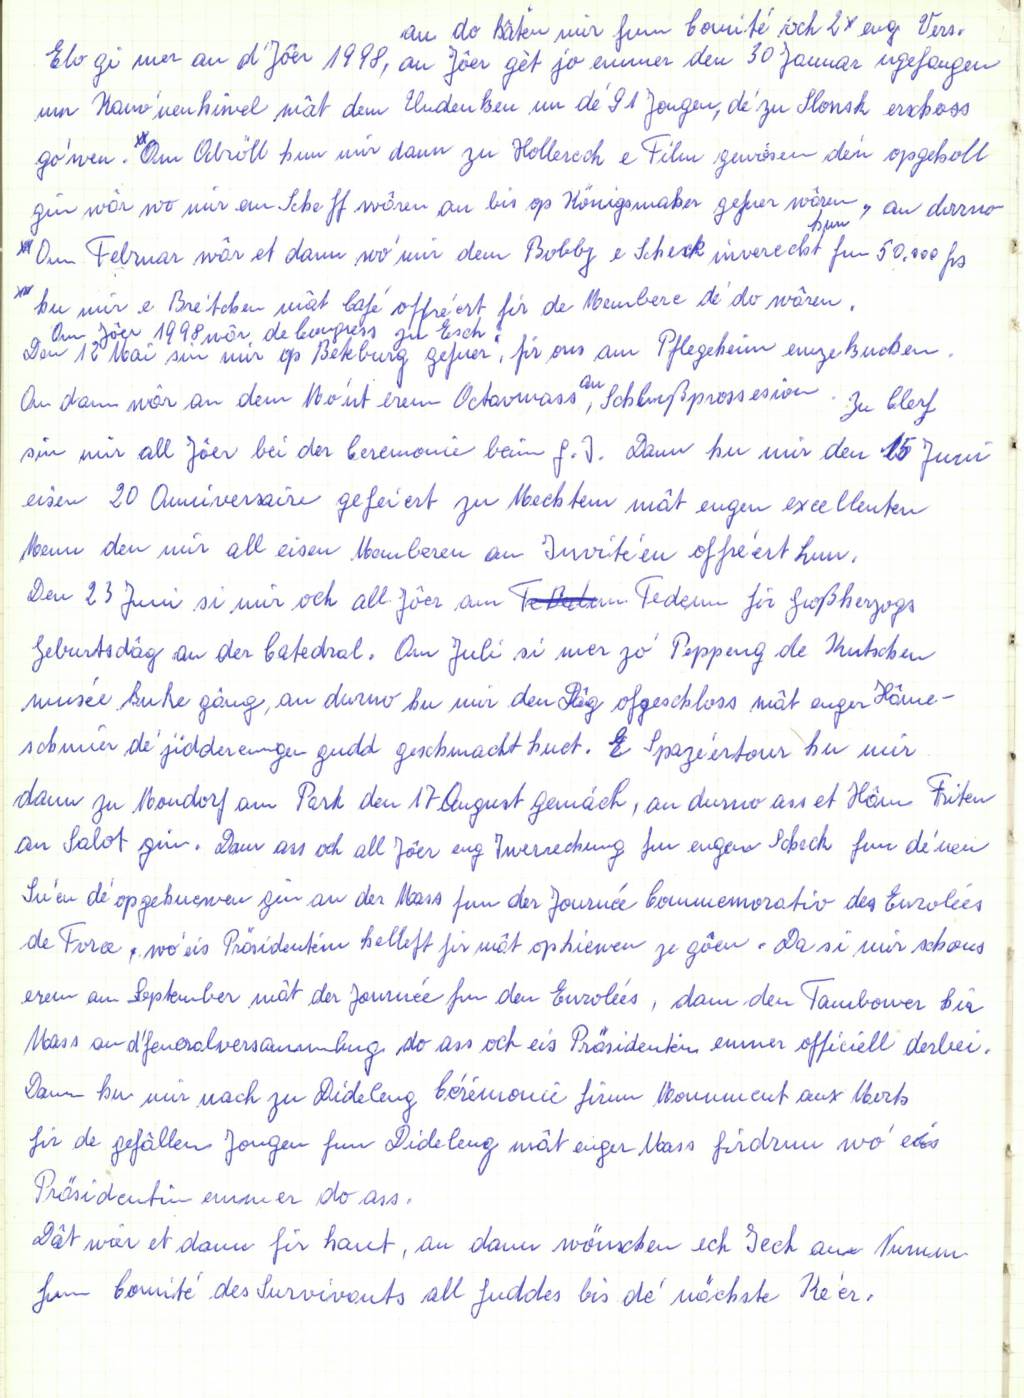 an do häten mir fum Comité och 2x eng Vers.
Elo gi mer an d'Jôer 1998, an Jôer gèt jo emmer den 30 Januar ugefangen
um Kano'nenhiwel mât dem Undenken un dé 91 Jongen, dé zu Slonsk erschoss
go'wen. xx Om Abröll hun mir dann zu Hollerech e Film gewisen dén opgeholl
gin wôr wo mir am Scheff wôren an bis op Königsmaker gefuer wôren, an durno
xx Om Februar wôr et dann wo' mir dem Bobby e Scheck iwerecht hun fun 50.000 frs
xx hu mir e Bre'tchen mât Café offre'ert fir de Membere dé do wôren.
Om Jôer 1998 wôr de Congress zu Esch.
Den 12 Mai sin mir op Beteburg gefuer, fir ons am Pflegeheim emzekucken.
An dann wôr an dem Mo'nt erem Octavmass an Schlußprossesion. Zu Clerf
sin mir all Jôer bei der Ceremonie beim G.I. Dann hu mir den 15 Juni
eisen 20 Anniversaire gefeiert zu Mechtem mât engen excellenten
Menu den mir all eisen Memberen an Invite'en offre'ert hun.
Den 23 Juni si mir och all Jôer am Tedeum fir Großherzogs
Geburtsdâg an der Catedral. Om Juli si mer zo' Peppeng de Kutschen
musée kuke gâng, an durno hu mir den Dâg ofgeschloss mât enger Hâme-
schmier dé jidderengen gudd geschmacht huet. E Spazéertour hu mir
dann zu Mondorf am Park den 17 August gemâch, an durno ass et Hâm Friten
an Salot gin. Dann ass och all Jôer eng Iwerrechung fun engem Scheck fun de'nen
Su'en dé opgehuewen gin an der Mass fun der Journée Commemorativ des Enrolés
de Force, wo' eis Präsidentin helleft fir mât ophiewen ze gôen. Da si mir schons
erem am September mât der Journée fun den Enrolés, dann den Tambower hir
Mass an d'Generalversammlung do ass och eis Präsidentin emmer officiell derbei.
Dann hu mir nach zu Dideleng Cérémonie firum Monument aux Morts
fir de gefâllen Jongen fun Dideleng mât enger Mass firdrun wo' eis
Präsidentin emmer do ass.
Dât wôr et dann fir haut, an dann wönschen ech Iech am Numm
fum Comité des Survivants all Guddes bis dé nächste Ke'er.